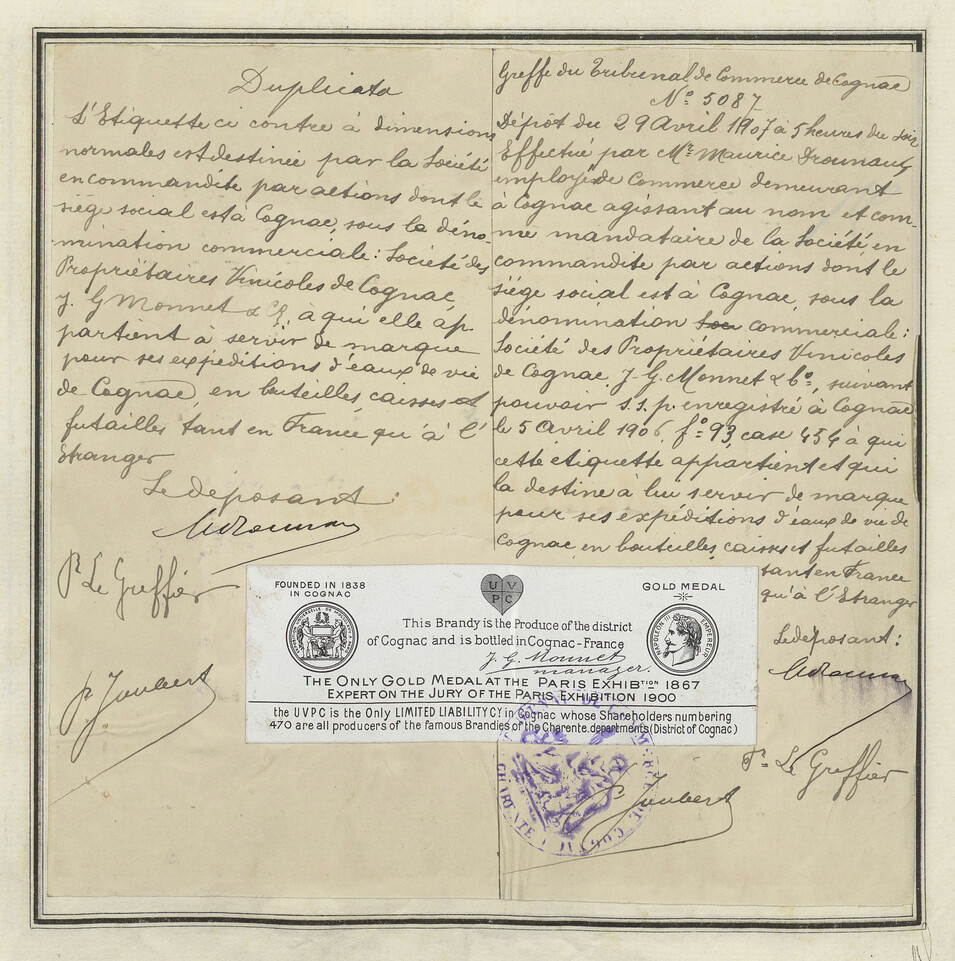 Duplicata
L'Etiquette ci contre à dimensions
normales est destinée par la Société
en commandite par actions dont le
siège social est à Cognac, sous la déno-
mination commerciale: Société des
Propriétaires Vinicoles de Cognac
J. G Monnet & Cie, à qui elle ap-
partient à servir de marque
pour ses expéditions d'eaux de vie
de Cognac, en bouteilles caisses et
futailles tant en France qu'à l'
Etranger
Le déposant:
Pr Le Greffier
Joubert
Greffe du Tribunal de Commerce de Cognac
No 5087
Dépôt du 29 Avril 1907 à 5 heures du soir
Effectué par Mr Maurice
employé de Commerce demeurant
à Cognac agissant au nom et com-
me mandataire de la Société en
commandite par actions dont le
siége social est à Cognac, sous la
dénomination commerciale:
Société des Propriétaires Vinicoles
de Cognac, J. G. Monnet & Co, suivant
pouvoir s.s.p. enregistré à Cognac
le 5 Avril 1906, fo 93, case 454 à qui
cette étiquette appartient et qui
la destine à lui servir de marque
pour ses expéditions d'eaux de vie de
Cognac, en bouteilles caisses et futailles
tant en France
qu'à l'Etranger
Le déposant:
Pr Le Greffier
Joubert
FOUNDED IN 1838
IN COGNAC
U V
P C
GOLD MEDAL
NAPOLEON III EMPEREUR
This Brandy is the Produce of the district
of Cognac and is bottled in Cognac-France
J. G. Monnet
manager.
THE ONLY GOLD MEDAL AT THE PARIS EXHIBTION 1867
EXPERT ON THE JURY OF THE PARIS EXHIBITION 1900
the UVPC is the Only LIMITED LIABILITY CY in Cognac whose Shareholders numbering
470 are all producers of the famous Brandies of the Charente.departments (District of Cognac)